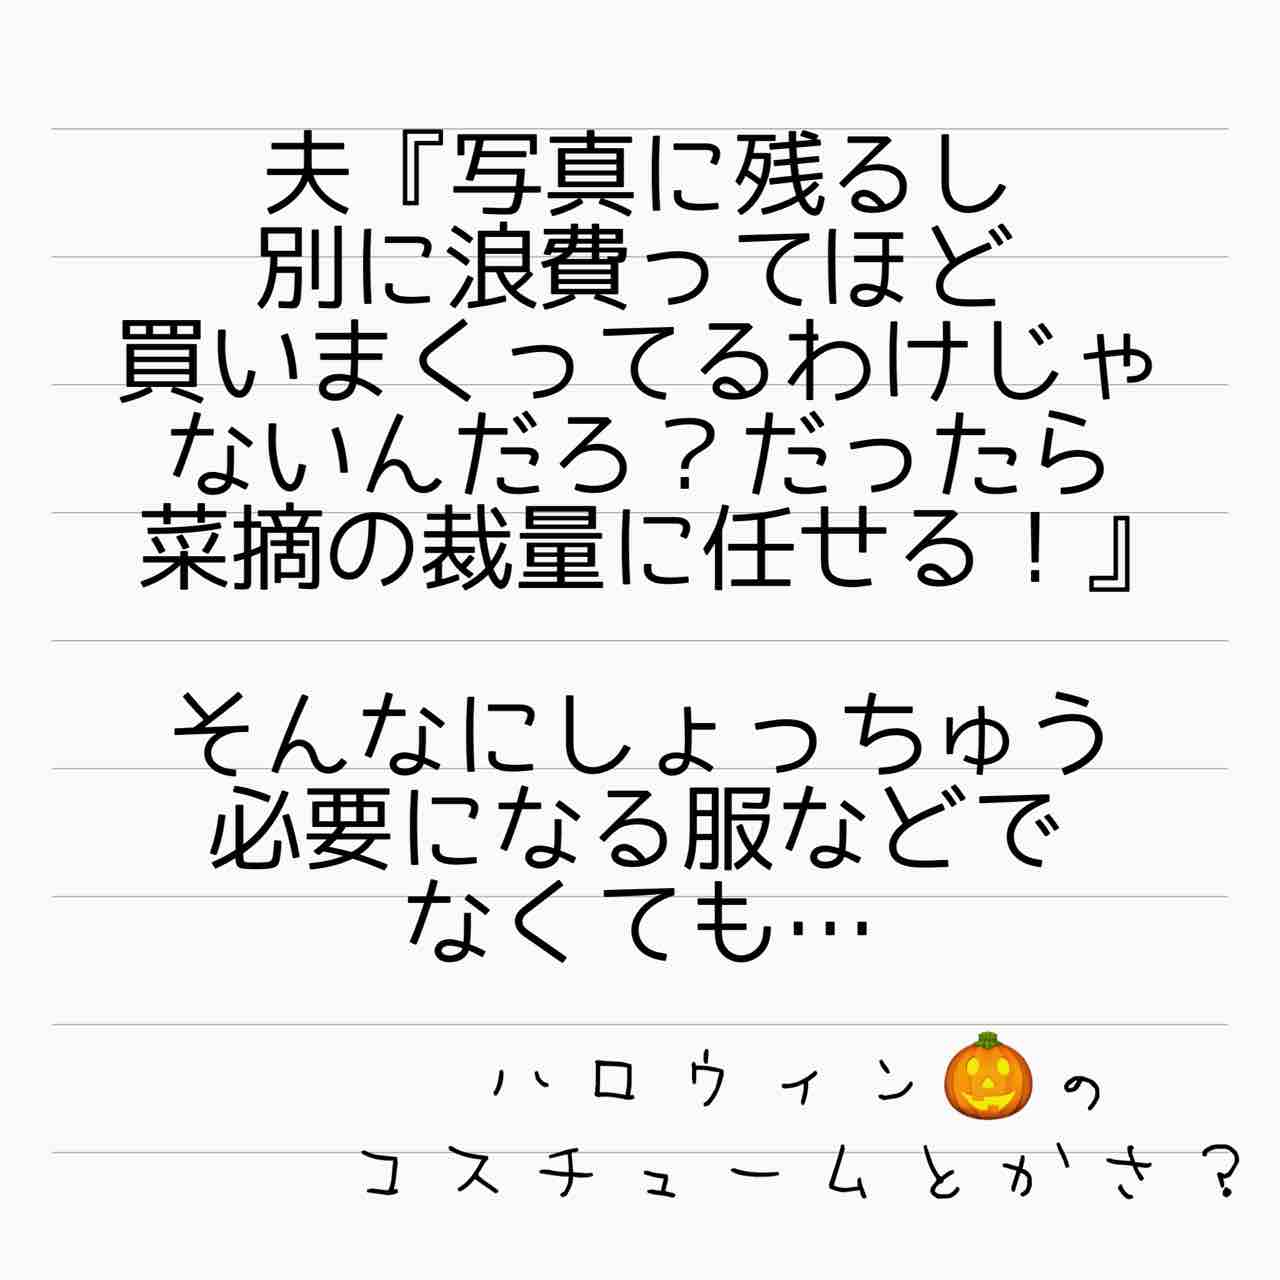 夫『写真に残るし
別に浪費ってほど
買いまくってるわけじゃ
ないんだろ？だったら
菜摘の裁量に任せる！』
そんなにしょっちゅう
必要になる服などで
なくても…
ハロウィン🎃の
コスチュームとかさ？